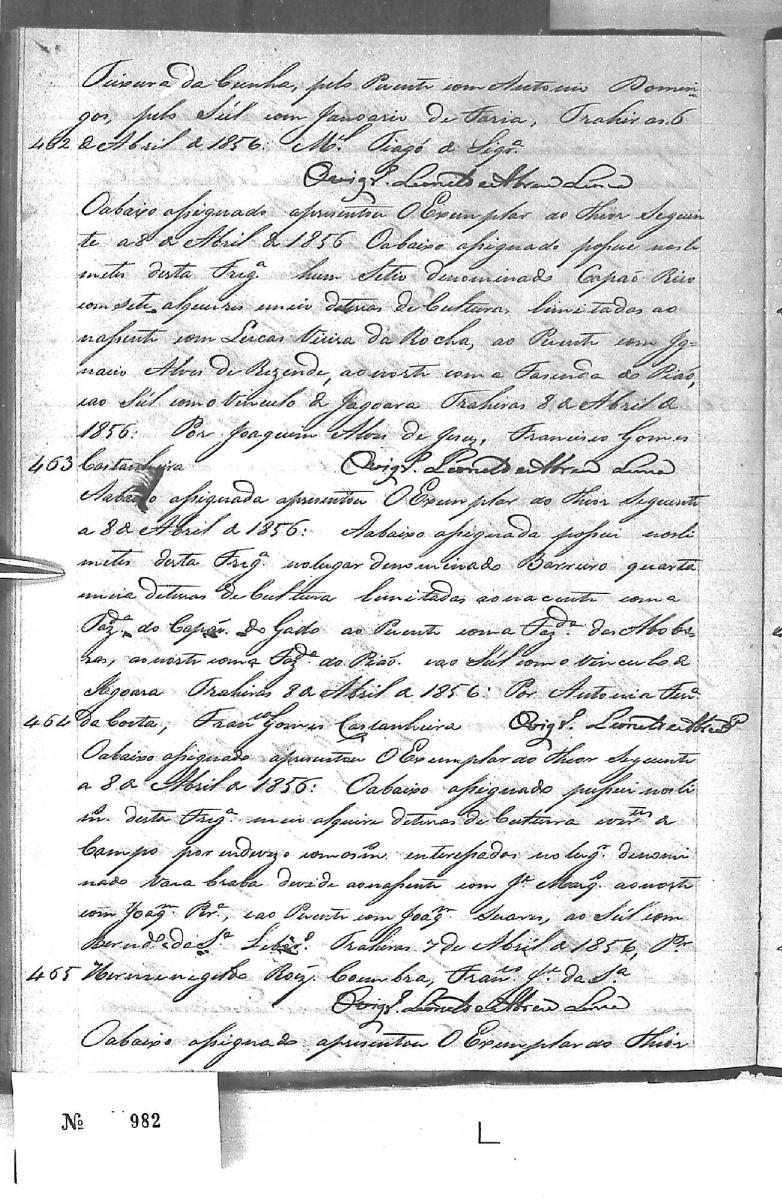 Teixeira da Cunha, pelo Puente com Antonio Domin-
gos, pelo Sul com Januario de Faria, Trahiras 6
462 de Abril de 1856: Mel Tiago de Siqra
O Vigrº Leonel de Abreu Lima
O abaixo assignado apresentou O Exemplar do Theor Seguin
te a 8 de Abril de 1856 O abaixo assignado possue nos li
mites desta Frega hum Sitio denominado Capaõ Rico
com sete alqueires e meio de terras de Cultura, limitadas ao
nassente com Lucas Vieira da Rocha, ao Puente com Ig-
nacio Alves de Rezende, ao norte com a Fasenda do Piaõ,
e ao Sul com o Vinculo de Jagoara Trahiras 8 de Abril de
1856: Por Joaquim Alves de Jesus, Francisco Gomes
463 Castanheira O Vigrº Leonel de Abreu Lima
A abaixo assignada apresentou O Exemplar do Theor Seguinte
a 8 de Abril de 1856: A abaixo assignada possui nos li
mites desta Frega no lugar denominado Barreiro quarta
e meia de terras de Cultura limitadas ao nacente com a
Faza do Capaõ do Gado ao Puente com a Fazda das Abobo-
ras, ao norte com a Fazda do Piaõ e ao Sul com o Vinculo de
Jagoara Trahiras 8 de Abril de 1856: Por Antonia Ferra
464 da Costa, Franco Gomes Castanheira O Vigrº Leonel de Abreu Lª
O abaixo assignado apresentou O Exemplar do Theor Seguinte
a 8 de Abril de 1856: O abaixo assignado possui nos li
m. desta Frega meio alqueire de terras de Cultura e de
Campo por endevizo com os m. interessados no lugr denomi
nado Vara braba devide ao nassente com Je Marq. ao norte
com Joaqm Pra, e ao Puente com Joaqm Soares, ao Sul com
da Sa Trahiras 7 de Abril de 1856, Pr
465 Hermenegildo Roiz Coimbra, Franco Je da Sa
O Vigrº Leonel de Abreu Lima
O abaixo assignado apresentou O Exemplar do Theor
Nº 982
L